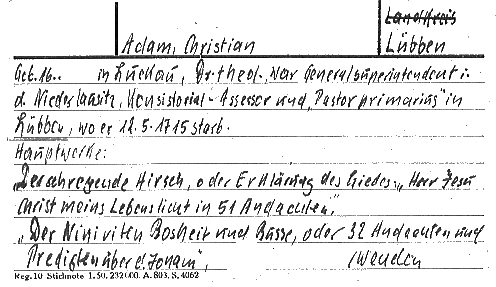 Landkreis
Adam, Christian
Lübben
Geb. 16.. in Luckau, Dr. theol., war Generalsuperintendent i.
d. Niederlausitz, Konsistorial-Assessor und „Pastor primarius" in
Lübben, wo er 12.5.1715 starb.
Hauptwerke:
„Der schreyende Hirsch, oder Erklärung des Liedes: „Herr Jesu
Christ meins Lebens Licht in 51 Andachten."
„Der Niniviten Bosheit und Busse, oder 32 Andachten und
Predigten über d. Jonam",
/wenden
Reg. 10 Stichnote 1. 50. 232000. A. 803. S. 4062